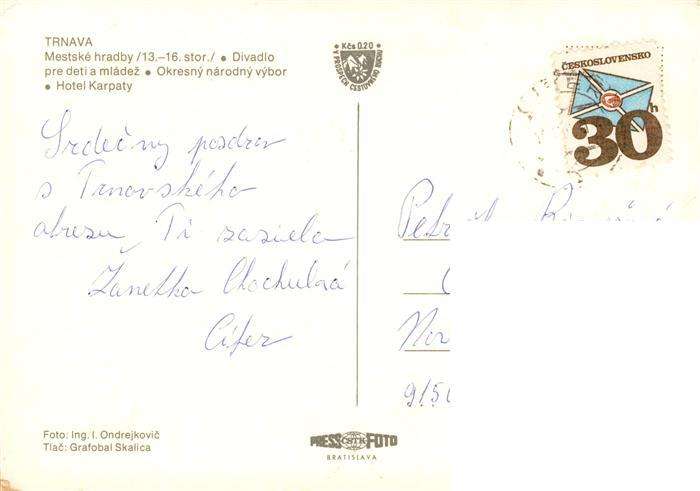 TRNAVA
Mestské hradby /13.–16. stor./ • Divadlo
pre deti a mládež • Okresný národný výbor
• Hotel Karpaty
Kčs 0.20
V PROSPECH CESTOVNÉHO RUCHU
ČESKOSLOVENSKO
30 h
Srdečný pozdrav
s Trnavského
okresu Ti zasiela
Žanetka Chochulová
Cífer
Petr
Nov
915
Foto: Ing. I. Ondrejkovič
Tlač: Grafobal Skalica
PRESS ČSTK FOTO
BRATISLAVA